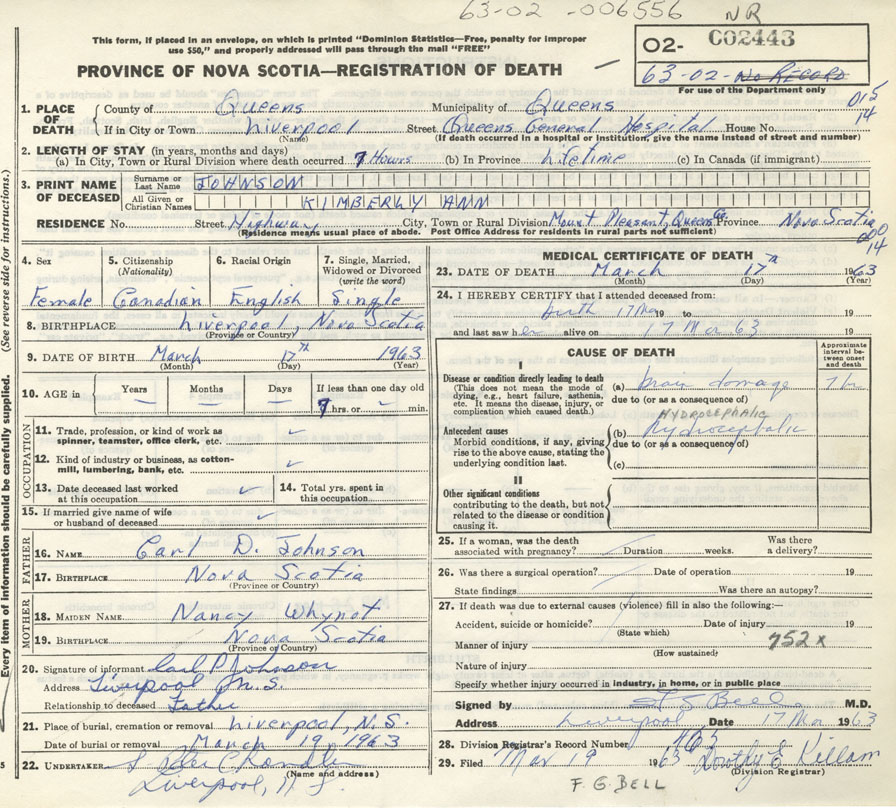 63-02 -006556 NR
This form, if placed in an envelope, on which is printed "Dominion Statistics—Free, penalty for improper
use $50," and properly addressed will pass through the mail "FREE"
02- C02443
63-02-No Record
For use of the Department only
PROVINCE OF NOVA SCOTIA—REGISTRATION OF DEATH
015
14
1. PLACE OF DEATH { County of Queens Municipality of Queens
If in City or Town Liverpool Street Queens General Hospital House No.
(Name) (If death occurred in a hospital or institution, give the name instead of street and number)
2. LENGTH OF STAY (in years, months and days)
(a) In City, Town or Rural Division where death occurred. 7 Hours (b) In Province Lifetime (c) In Canada (if immigrant)
3. PRINT NAME OF DECEASED
Surname or Last Name JOHNSON
All Given or Christian Names KIMBERLY ANN
RESIDENCE No. Street Highway City, Town or Rural Division Mount Pleasant, Queens Co. Province Nova Scotia
(Residence means usual place of abode. Post Office Address for residents in rural parts not sufficient)
000
14
4. Sex 5. Citizenship (Nationality) 6. Racial Origin 7. Single, Married, Widowed or Divorced (write the word)
Female Canadian English Single
8. BIRTHPLACE Liverpool, Nova Scotia
(Province or Country)
9. DATE OF BIRTH March 17th 1963
(Month) (Day) (Year)
10. AGE in Years Months Days If less than one day old
7 hrs. or min.
OCCUPATION
11. Trade, profession, or kind of work as
spinner, teamster, office clerk, etc.
12. Kind of industry or business, as cotton-
mill, lumbering, bank, etc.
13. Date deceased last worked
at this occupation
14. Total yrs. spent in
this occupation
15. If married give name of wife
or husband of deceased
FATHER
16. NAME Carl D. Johnson
17. BIRTHPLACE Nova Scotia
(Province or Country)
MOTHER
18. MAIDEN NAME Nancy Whynot
19. BIRTHPLACE Nova Scotia
(Province or Country)
20. Signature of informant Carl Johnson
Address Liverpool N.S.
Relationship to deceased Father
21. Place of burial, cremation or removal Liverpool, N.S.
Date of burial or removal March 19 1963
22. UNDERTAKER
(Name and address)
Liverpool, N S.
MEDICAL CERTIFICATE OF DEATH
23. DATE OF DEATH March 17th 1963
(Month) (Day) (Year)
24. I HEREBY CERTIFY that I attended deceased from:
birth 17 Mar 19 to 19
and last saw her alive on 17 Mar 63 19
CAUSE OF DEATH
Approximate interval between onset and death
I
Disease or condition directly leading to death
(This does not mean the mode of
dying, e.g., heart failure, asthenia,
etc. It means the disease, injury, or
complication which caused death.)
(a) brain damage 7 h
due to (or as a consequence of)
HYDROCEPHALIC
Antecedent causes
Morbid conditions, if any, giving
rise to the above cause, stating the
underlying condition last.
(b) hydrocephalic
due to (or as a consequence of)
(c)
II
Other significant conditions
contributing to the death, but not
related to the disease or condition
causing it.
25. If a woman, was the death
associated with pregnancy? Duration weeks. Was there
a delivery?
26. Was there a surgical operation? Date of operation 19
State findings Was there an autopsy?
27. If death was due to external causes (violence) fill in also the following:—
Accident, suicide or homicide? Date of injury 19
(State which)
Manner of injury 752x
(How sustained)
Nature of injury
Specify whether injury occurred in industry, in home, or in public place
Signed by F G Bell M.D.
Address Liverpool Date 17 Mar 1963
28. Division Registrar's Record Number
29. Filed Mar 19 1963 Dorothy E Killam
(Division Registrar)
F. G. BELL
Every item of information should be carefully supplied. (See reverse side for instructions.)
5